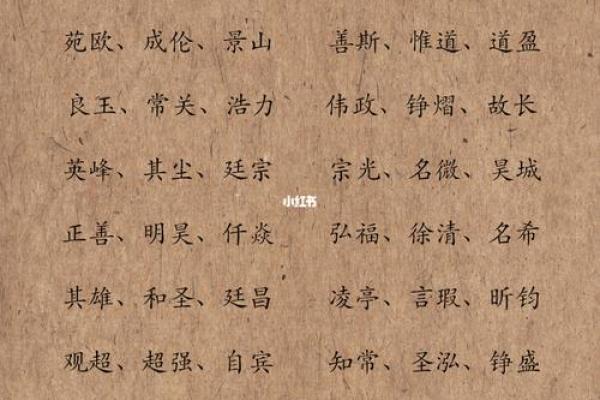 苑欧、成伦、景山 善斯、惟道、道盈
良玉、常关、浩力 伟政、铮熠、故长
英峰、其尘、廷宗 宗光、名微、昊城
小红书
正善、明昊、仟焱 弘福、徐清、名希
其雄、和圣、廷昌 凌亭、言瑕、昕钧
观超、超强、自宾 知常、圣泓、铮盛